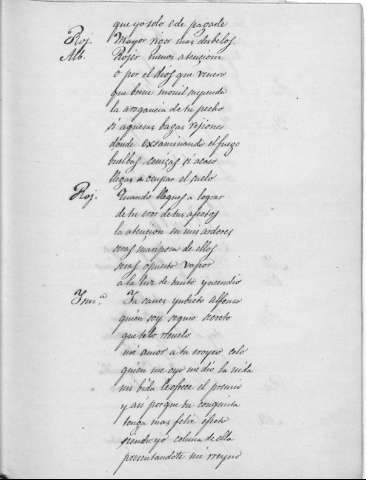 que yo solo e de pagarle
Roj. Mayor rigor mas desbelos
Alb. Rojér menos atencion
o por el dios que venero
que borre monil suspende
la arogancia de tu pecho
si aquesas bagas rejiones
donde exsaminando el fuego
buelbas cenizas si acaso
llegas a ocupar el suelo
Roj. Cuando llegues a lograr
de tu eros de tus afectos
la atencion en mis ardores
seras mariposa de ellos
seras opuesto vapor
a la luz de tanto yncendio
Ysm.ª Ya sabes ynbicto Alfonso
quien soy seguro secreto
que te lo rebelo
mi amor a tu croyco celo
quien me oyo me dio la vida
mi bida le ofrece el premio
y asi porque tu conquista
tenga mas feliz efecto
siendo yo coluna de ella
presentandote mi reyno